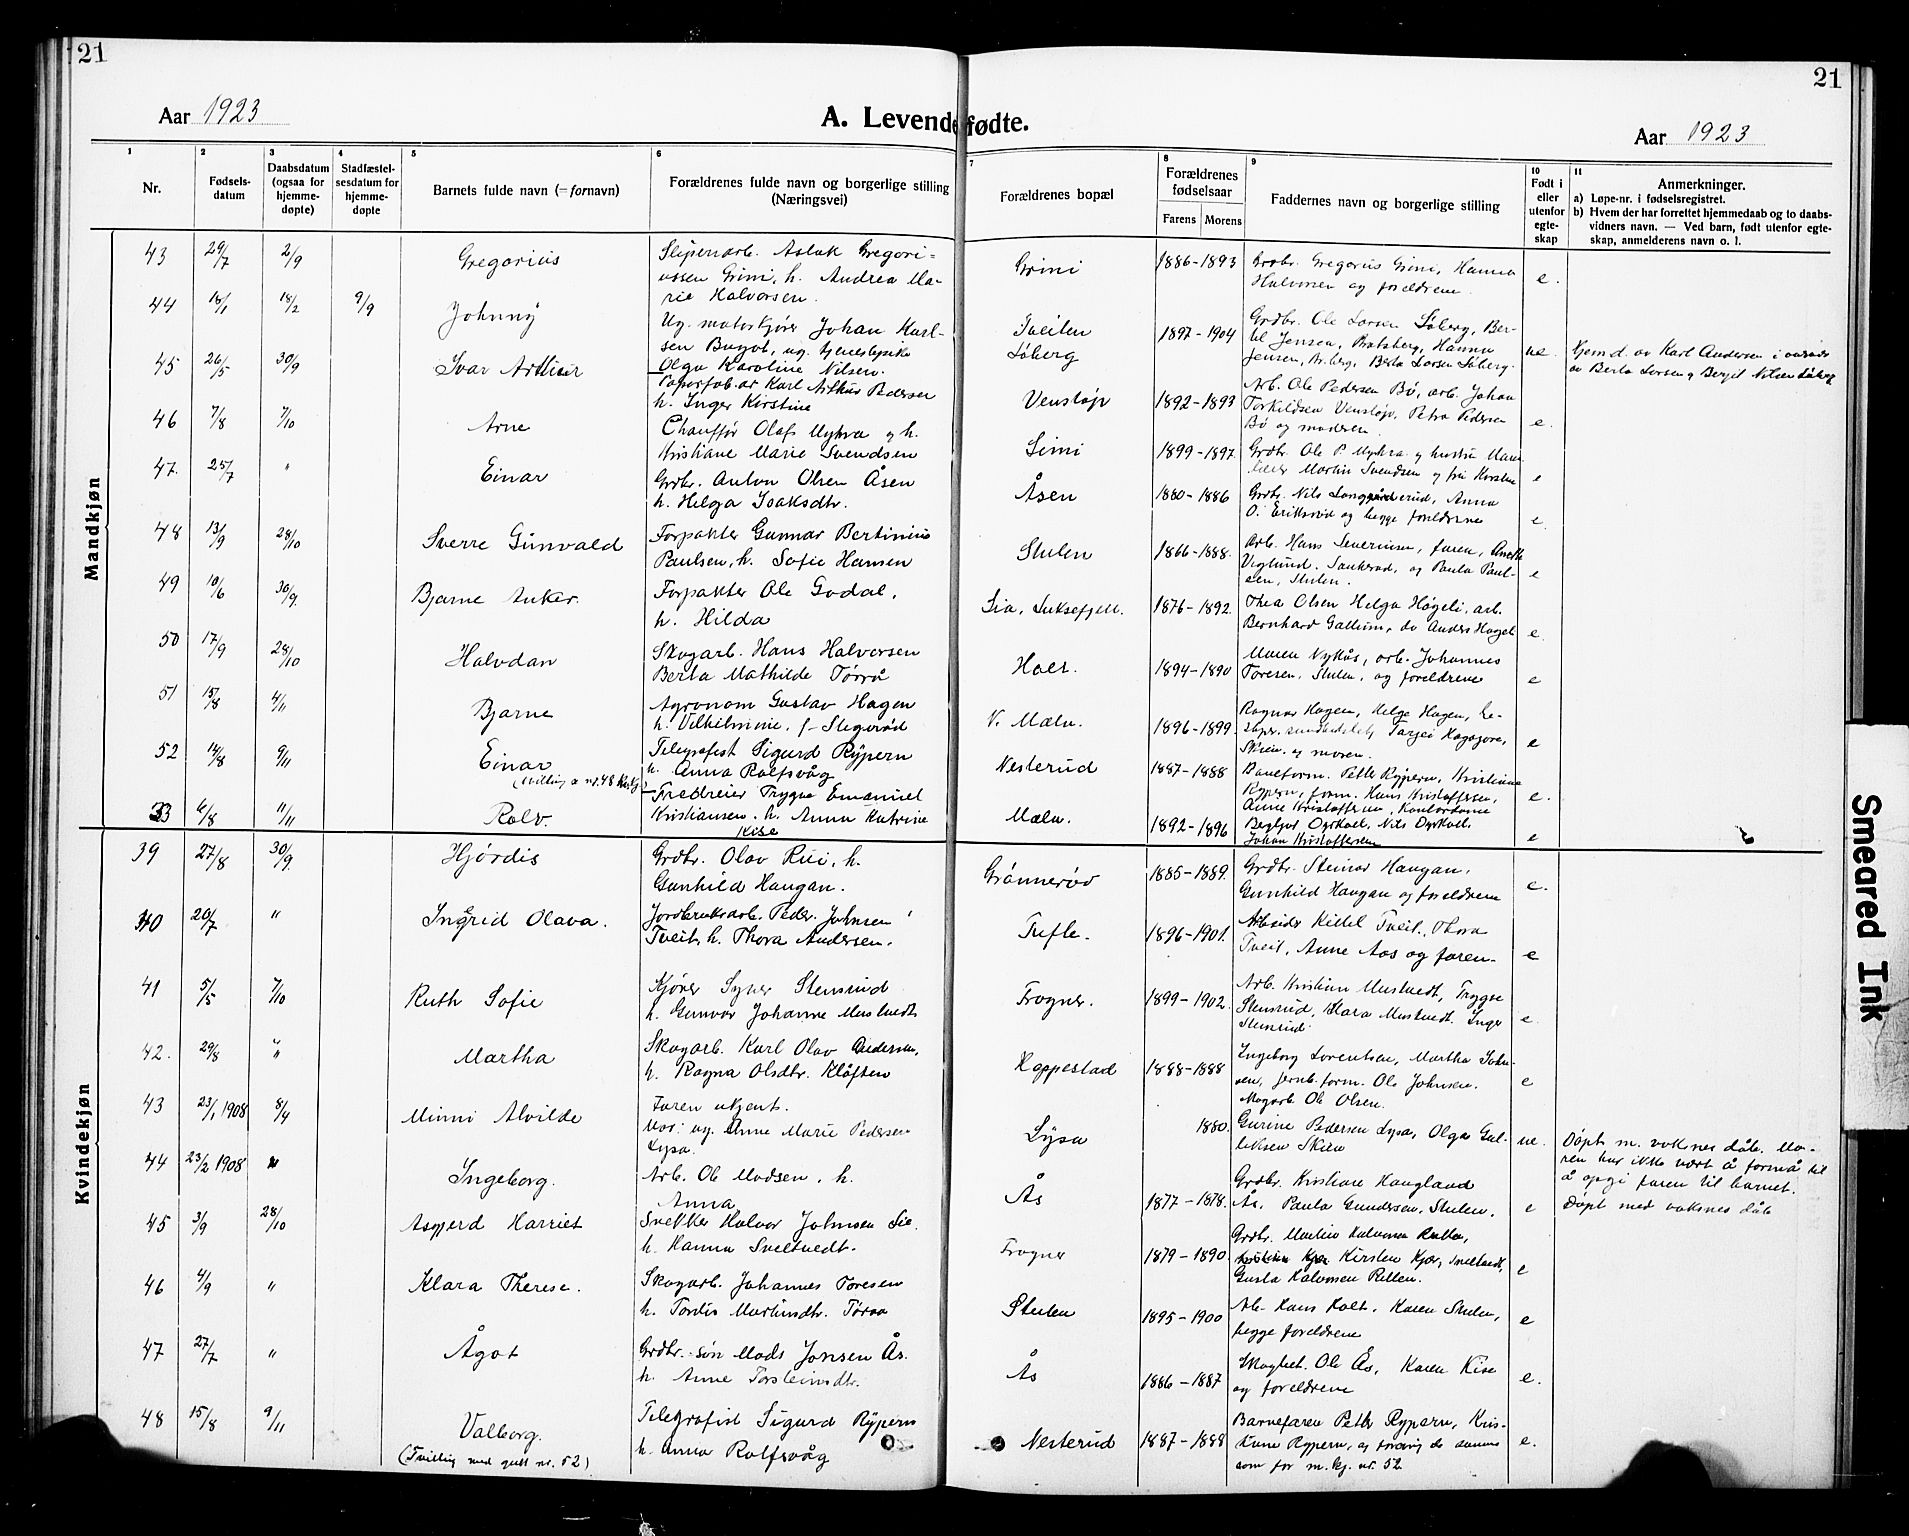 21
21
Aar 1923
A. Levendefødte.
Aar 1923
1 2 3 4 5 6 7 8 9 10 11
Nr.
Fødsels-
datum
Daabsdatum
(ogsaa for
hjemme-
døpte)
Stadfæstel-
sesdatum for
hjemme-
døpte
Barnets fulde navn (= fornavn)
Forældrenes fulde navn og borgerlige stilling
(Næringsvei)
Forældrenes bopæl
Forældrenes
fødselsaar
Farens Morens
Faddernes navn og borgerlige stilling
Født i
eller
utenfor
egte-
skap
Anmerkninger.
a) Løpe-nr. i fødselsregistret.
b) Hvem der har forrettet hjemmedaab og to daabs-
vidners navn. — Ved barn, født utenfor egte-
skap, anmelderens navn o. l.
Mandkjøn
43 29/7 2/9 Gregorius
Slipenarb. Aslak Gregori-
ussen Grini, h. Andrea Ma-
rie Halvorsen.
Grini 1886-1893
Grdbr. Gregorius Grini, Hanna
Halvorsen og foreldrene. e.
44 18/1 18/2 9/9 Johnny
Ug. motorkjører Johan Karl-
sen Bugot, ug. tjenestepike
Olga Karoline Nilsen.
Tveiten
Søberg 1897-1904
Grdbr. Ole Larsen Søberg, Ber-
til Jensen, Bratsberg, Hanna
Jensen, Berta Larsen Søberg. ue.
Hjemd. av Karl Andersen
av Berta Larsen og Bergit Nilsen Søberg
45 26/5 30/9 Ivar Arthur
Papirfab.ar Karl Arthur Pedersen
h. Inger Kirstine
Venstøp 1892-1893
Arb. Ole Pedersen Bø, arb. Johan
Torkildsen Venstøp, Petra Pedersen
Bø og moderen. e.
46 7/8 7/10 Arne
Chauffør Olaf Myhra og h.
Kristiane Marie Svendsen
Limi 1899-1897
Grdbr. Ole P. Myhra og hustru Maren
Martin Svendsen og fru Kirsten e
47. 25/7 " Einar
Grdbr. Anton Olsen Åsen
h. Helga Isaksdtr.
Åsen 1880-1886
Grdbr. Nils Langgårderud, Anna
O. Eriksrød og begge foreldrene e.
48 13/9 28/10 Sverre Gunvald
Forpakter Gunnar Bertinius
Paulsen, h. Sofie Hansen
Stulen 1866-1888.
Arb. Hans Severinsen, faren, Anette
Viglund. Sauherad, og Paula Paul-
sen, Stulen. e
49 10/6 30/9. Bjarne Anker.
Forpakter Ole Godal,
h. Hilda
Lia, Luksefjell. 1876-1892
Thea Olsen Helga Høgeli, arb.
Bernhard Gallum, do Anders Høgeli e.
50 17/9 28/10 Halvdan
Skogarb. Hans Halvorsen
Berta Mathilde Torrå
Holt. 1894-1890
Maren Nykås, arb. Johannes
Toresen, Stulen, og foreldrene e
51 15/8 4/11 Bjarne
Agronom Gustav Hagen
h. Vilhelmine, f. Stigerød
V. Mæla. 1896-1899
Ragnar Hagen, Helga Hagen,
Skien. og moren. e
52 14/8 9/11 Einar
(tvilling a nr. 48 )
Telegrafist Sigurd Rypern
h. Anna Rolfsvåg
Nesterud 1887-1888
Baneform. Petter Rypern, Kristiane
Rypern, form. Hans Kristoffersen,
Anne Kristoffersen, e.
53 6/8 11/11 Rolv.
Fredreier Trygve Emanuel
Kristiansen. h. Anna Katrine
Kise
Mæla. 1892-1896
Kontordame
Nils Dyrkoll.
Johan Kristoffersen e
Kvindekjøn
39 27/8 30/9. Hjørdis
Grdbr. Olav Rui, h.
Gunhild Haugan.
Grønnerød 1885-1889.
Grdbr. Steinar Haugan,
Gunhild Haugan og foreldrene e.
40 20/7 " Ingrid Olava.
Jordbruksarb. Peder Johnsen
Tveit, h. Thora Andersen.
Tufte. 1896-1901.
Arbeider Kittel Tveit, Thora
Tveit, Anne Aas og faren. e
41 5/5 7/10 Ruth Sofie
Kjører Syver Stensrud
h. Gunvor Johanne Mustvedt
Frogner. 1899-1902.
Arb. Kristian Mustvedt, Trygve
Stensrud, Klara Mustvedt. Inger
Stensrud. e.
42. 29/8 " Martha
Skogarb. Karl Olav Andersen,
h. Ragna Olsdtr. Kløften
Hoppestad 1888-1888
Ingeborg Lorentsen, Martha John-
sen, jernb. form. Ole Johnsen.
Ole Olsen. e
43 23/1 1908 8/4 Minni Alvilde
Faren ukjent.
Mor: ug. Anne Marie Pedersen
Lysa.
Lysa 1880.
Gurine Pedersen Lysa, Olga Gul-
leksen Skien ue.
Døpt m. voksnes dåb. Mo-
ren har ikke vært å formå til
å opgi faren til barnet.
44 23/2 1908 " Ingeborg.
Arb. Ole Madsen, h.
Anna
Ås 1877-1878.
Grdbr. Kristiane Haugland
Ås, Paula Gundersen, Stulen. e
Døpt med voksnes dåb
45 3/9 28/10 Asgjerd Harriet
Snekker Halvor Johnsen Lie
h. Hanna Sveltvedt.
Frogner 1879-1890
Grdbr. Martin Halvorsen
Kirsten Kjær, Sveltvedt,
Gusta Halvorsen e
46 4/9 " Klara Therese.
Skogarb. Johannes Toresen
h. Tordis Martinsdtr. Toraa
Stulen 1895-1900
Arb. Hans Holt. Karen Stulen,
begge foreldrene e
47 27/7 " Ågot
Grdbr.-søn Mads Jonsen Ås.
h. Anne Torsteinsdtr.
Ås 1886-1887
Ole Ås, Karen Kise
og foreldrene e.
48 15/8 9/11 Valborg.
(Tvilling med gutt nr. 52)
Telegrafist Sigurd Rypern
h. Anna Rolfsvåg
Nesterud 1887-1888
Barnefaren Petter Rypern, Kris-
tiane Rypern, og forøvrig de samme
som for m.kj. nr. 52 e.
Smeared Ink